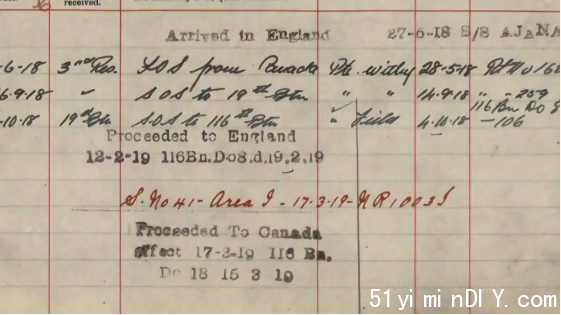 received.
Arrived in England 27-6-18 S/S AJANA
-6-18 3rd Res. TOS from Canada Pte. Witley 28-5-18 Pt II o 168
6.9.18 " SOS to 19th Btn " " 14-9-18 " - 259
-10-18 19th Btn SOS to 116th Btn " Field 4-10-18 116 Bn Do 8 -106
Proceeded to England
12-2-19 116Bn.Do8.d.19.2.19
S. No 41 - Area I - 17-3-19 - NR1003I
Proceeded To Canada
effect 17-3-19 116 Bn.
Do 18 15 3 19
51yiminDIY.com